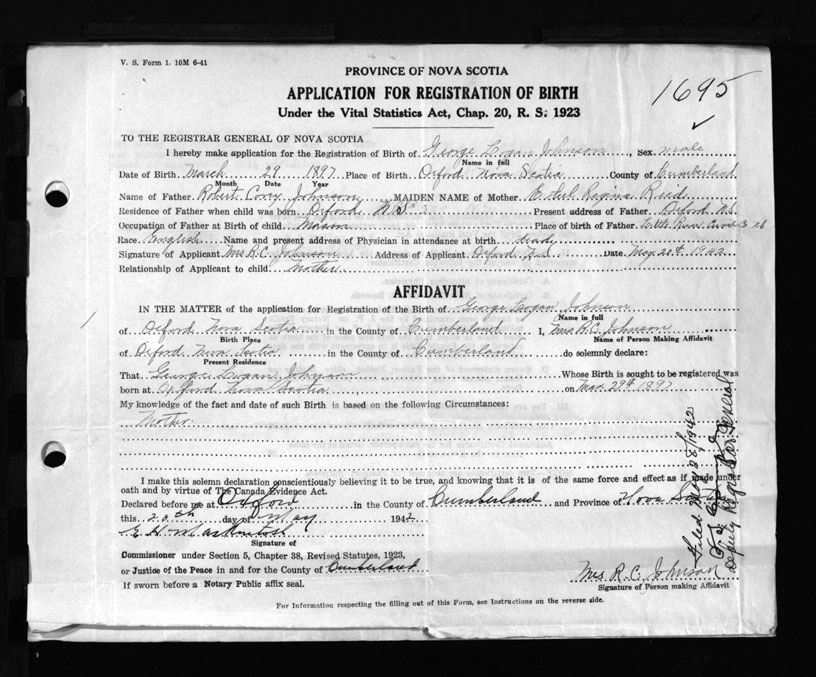 V. S. Form 1. 10M 6-41
PROVINCE OF NOVA SCOTIA
APPLICATION FOR REGISTRATION OF BIRTH
Under the Vital Statistics Act, Chap. 20, R. S. 1923
1695
TO THE REGISTRAR GENERAL OF NOVA SCOTIA
I hereby make application for the Registration of Birth of George Logan Johnson, Sex male
Name in full
Date of Birth March 29 1897 Place of Birth Oxford Nova Scotia County of Cumberland
Month Date Year
Name of Father Robert Corry Johnson MAIDEN NAME of Mother Ethel Regina Reid
Residence of Father when child was born Oxford N.S. Present address of Father Oxford N.S.
Occupation of Father at Birth of child Mason Place of birth of Father Little River
Race English Name and present address of Physician in attendance at birth dead
Signature of Applicant Mrs R.C. Johnson Address of Applicant Oxford N.S. Date May 20th 1942
Relationship of Applicant to child Mother
AFFIDAVIT
IN THE MATTER of the application for Registration of the Birth of George Logan Johnson
Name in full
of Oxford Nova Scotia in the County of Cumberland I, Mrs R.C. Johnson
Birth Place Name of Person Making Affidavit
of Oxford Nova Scotia in the County of Cumberland do solemnly declare:
Present Residence
That George Logan Johnson Whose Birth is sought to be registered was
born at Oxford Nova Scotia on Mar. 29th 1897
My knowledge of the fact and date of such Birth is based on the following Circumstances:
Mother
I make this solemn declaration conscientiously believing it to be true, and knowing that it is of the same force and effect as if made under
oath and by virtue of The Canada Evidence Act.
Declared before me at Oxford in the County of Cumberland and Province of Nova Scotia
this 20th day of May 1942
E. H. MacKintosh
Signature of
Commissioner under Section 5, Chapter 38, Revised Statutes, 1923,
or Justice of the Peace in and for the County of Cumberland
If sworn before a Notary Public affix seal.
Mrs R. C. Johnson
Signature of Person making Affidavit
For Information respecting the filling out of this Form, see Instructions on the reverse side.
Filed May 28/1942
Deputy Registrar General